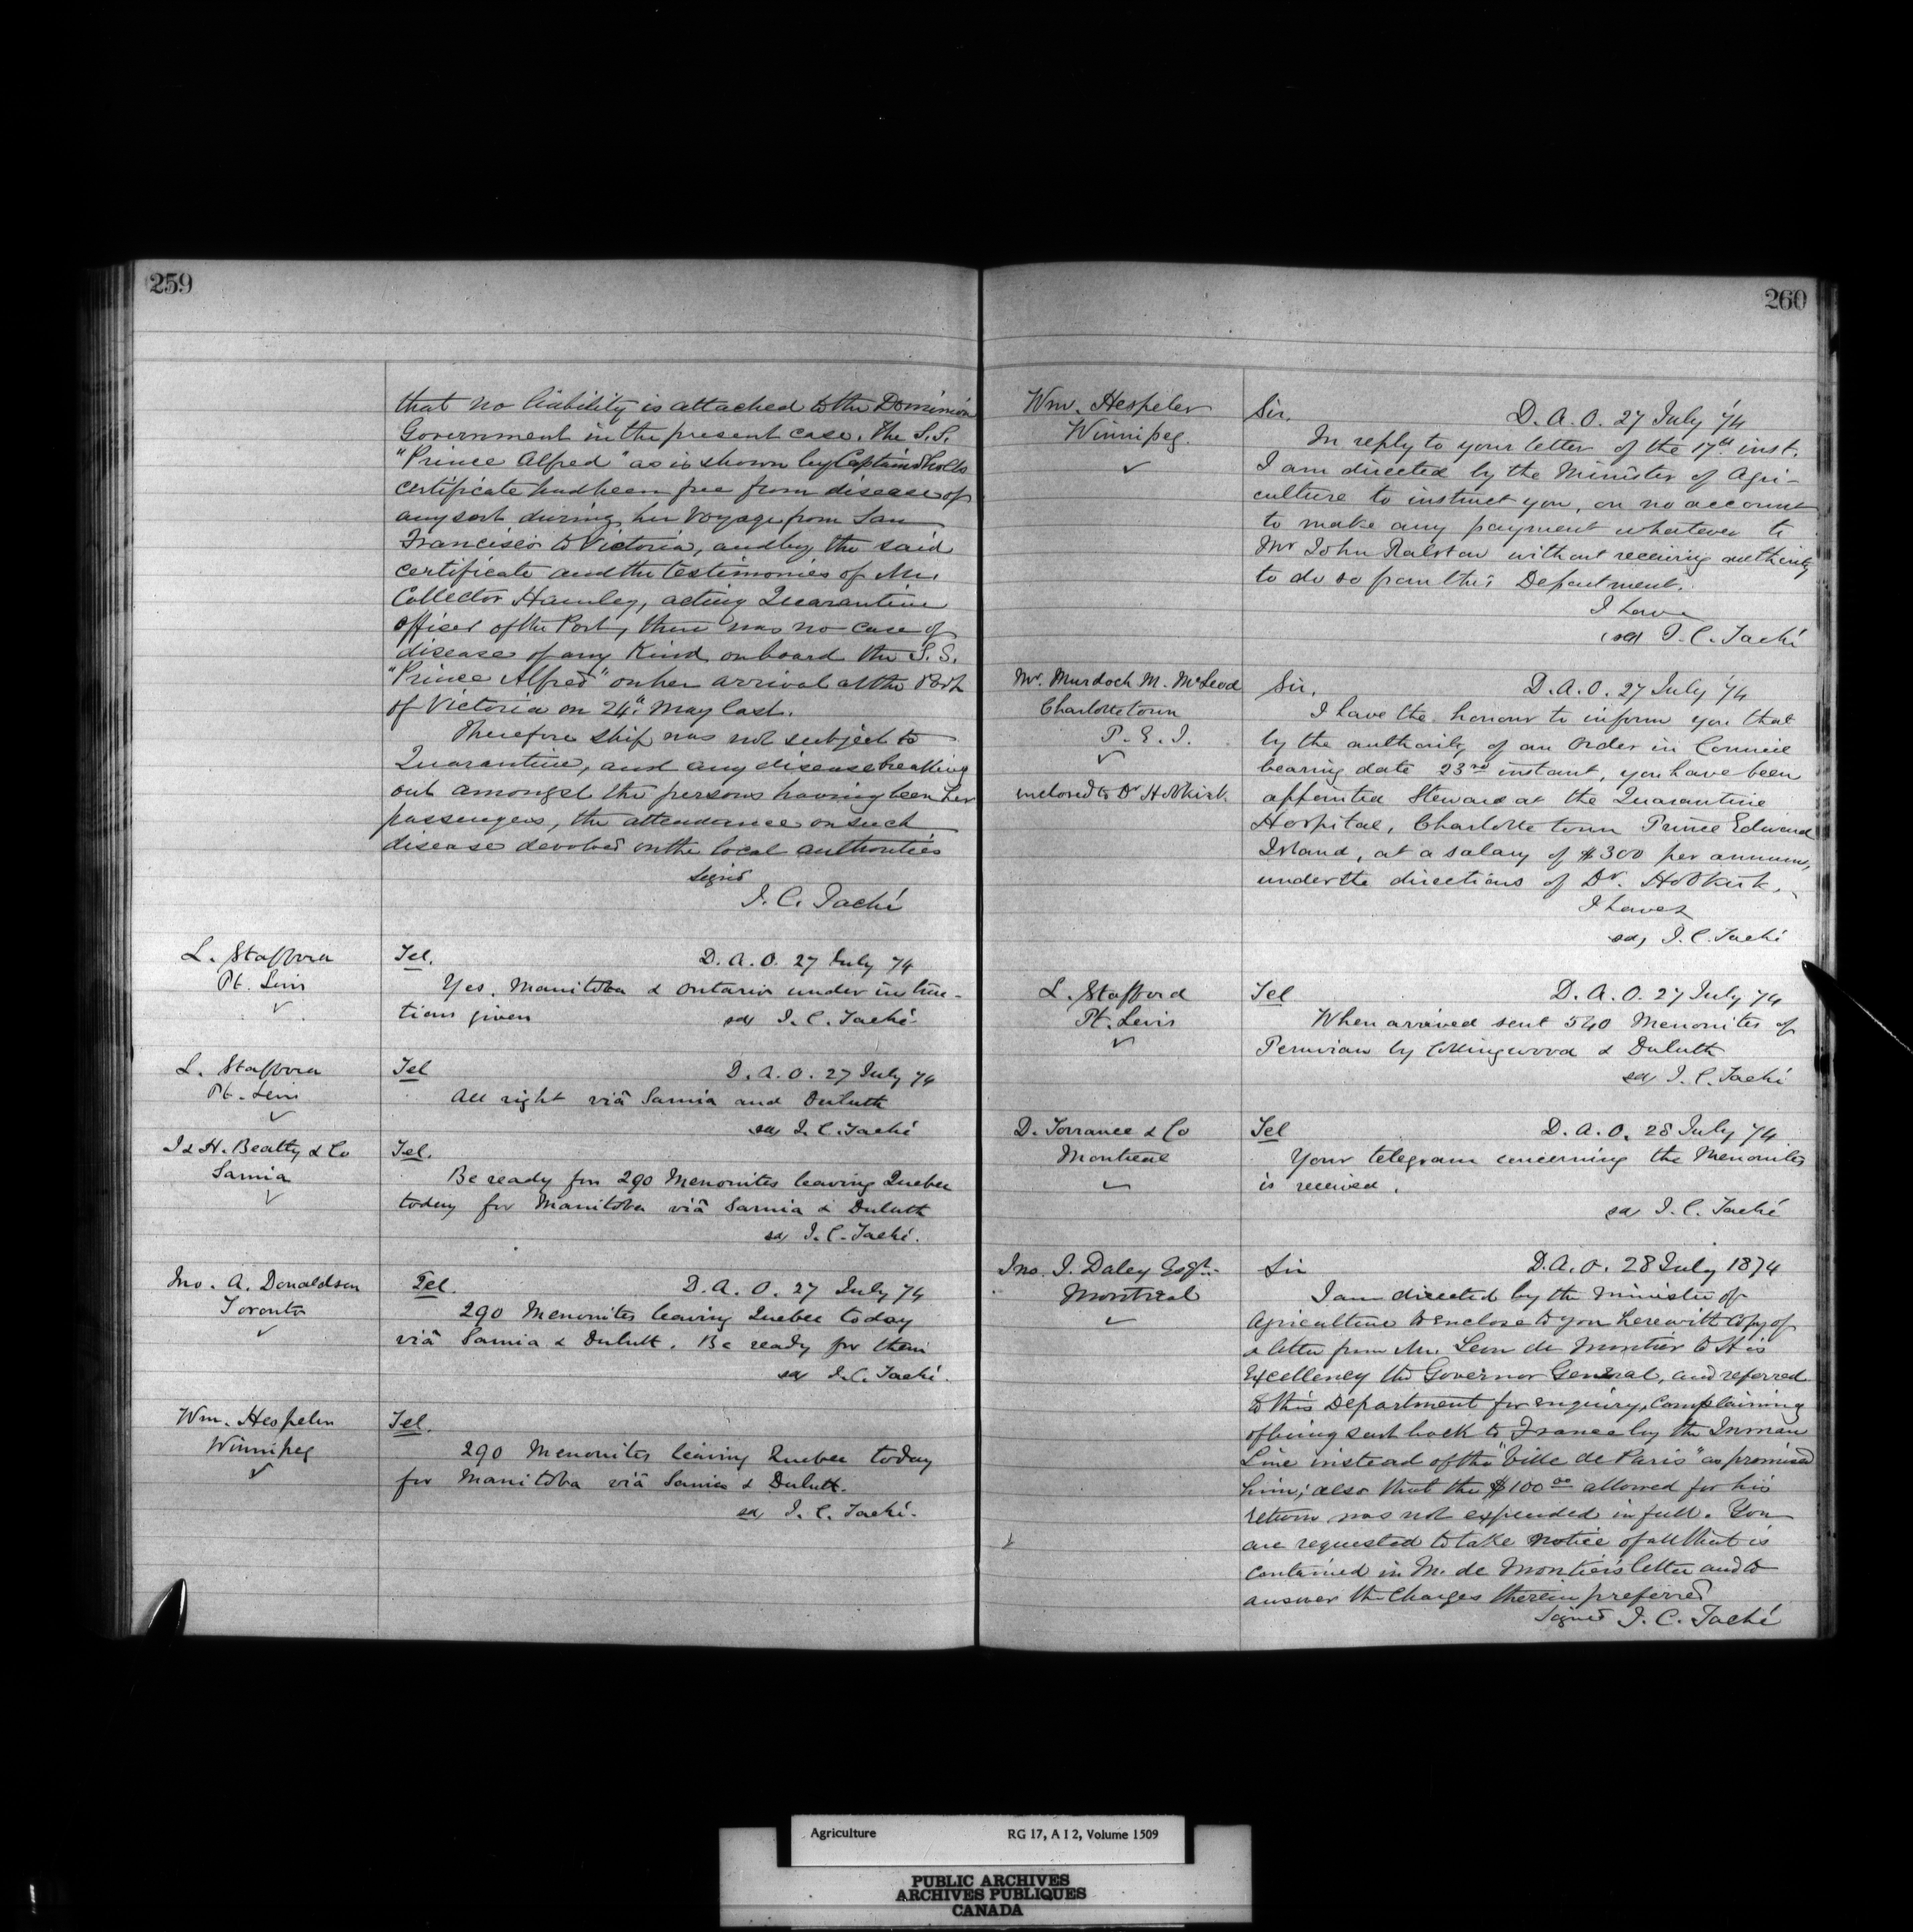 259
that no liability is attached to the Dominion
Government in the present case. The S.S.
"Prince Alfred" as is shown by Captain Sholls
certificate had been free from disease of
any sort during her voyage from San
Francisco to Victoria, and by the said
certificate and the testimonies of Mr.
Collector Hamley, acting Quarantine
Officer of the Port, there was no case of
disease of any kind on board the S.S.
"Prince Alfred" on her arrival at the Port
of Victoria on 24th May last.
Therefore ship was not subject to
Quarantine, and any disease breaking
out amongst the persons having been her
passengers, the attendance on such
disease devolved on the local authorities
Signed
J. C. Taché
L. Stafford
Pt. Levis
Tel. D. A. O. 27 July 74
Yes. Manitoba & Ontario under instruc-
tions given sd J. C. Taché
L. Stafford
Pt. Levis
Tel D. A. O. 27 July 74
All right viâ Sarnia and Duluth
sd J. C. Taché
J & H. Beatty & Co
Sarnia
Tel.
Be ready for 290 Menonites leaving Quebec
today for Manitoba viâ Sarnia & Duluth
sd J. C. Taché.
Jno. A. Donaldson
Toronto
Tel. D. A. O. 27 July 74
290 Menonites leaving Quebec today
viâ Sarnia & Duluth. Be ready for them
sd J. C. Taché.
Wm. Hespeler
Winnipeg
Tel.
290 Menonites leaving Quebec today
for Manitoba viâ Sarnia & Duluth.
sd J. C. Taché.
260
Wm. Hespeler
Winnipeg.
Sir, D. A. O. 27 July '74
In reply to your letter of the 17th inst.
I am directed by the Minister of Agri-
culture to instruct you, on no account
to make any payment whatever to
Mr John Ralston without receiving authority
to do so from this Department.
I have
(sd) J. C. Taché
Mr. Murdoch M. McLeod
Charlottetown
P. E. I.
enclosed to Dr Hobkirk.
Sir, D. A. O. 27 July '74
I have the honour to inform you that
by the authority of an Order in Council
bearing date 23rd instant, you have been
appointed Steward at the Quarantine
Hospital, Charlottetown Prince Edward
Island, at a salary of $300 per annum,
under the directions of Dr. Hobkirk.
I have
sd, J. C. Taché
L. Stafford
Pt. Levis
Tel D. A. O. 27 July 74
When arrived sent 540 Menonites of
Peruvian by Collingwood & Duluth
sd J. C. Taché
D. Torrance & Co
Montreal
Tel D. A. O. 28 July 74
Your telegram concerning the Menonites
is received.
sd J. C. Taché
Jno. J. Daley Esqr.
Montreal
Sir D. A. O. 28 July 1874
I am directed by the Minister of
Agriculture to enclose to you herewith copy of
a letter from Mr. Leon de Montier to His
Excellency the Governor General, and referred
to this Department for enquiry, complaining
of being sent back to France by the Inman
Line instead of the "Ville de Paris" as promised
him; also that the $100 00 allowed for his
return was not expended in full. You
are requested to take notice of all that is
contained in M. de Montier's letter and to
answer the charges therein preferred
Signed J. C. Taché
Agriculture RG 17, A I 2, Volume 1509
PUBLIC ARCHIVES
ARCHIVES PUBLIQUES
CANADA